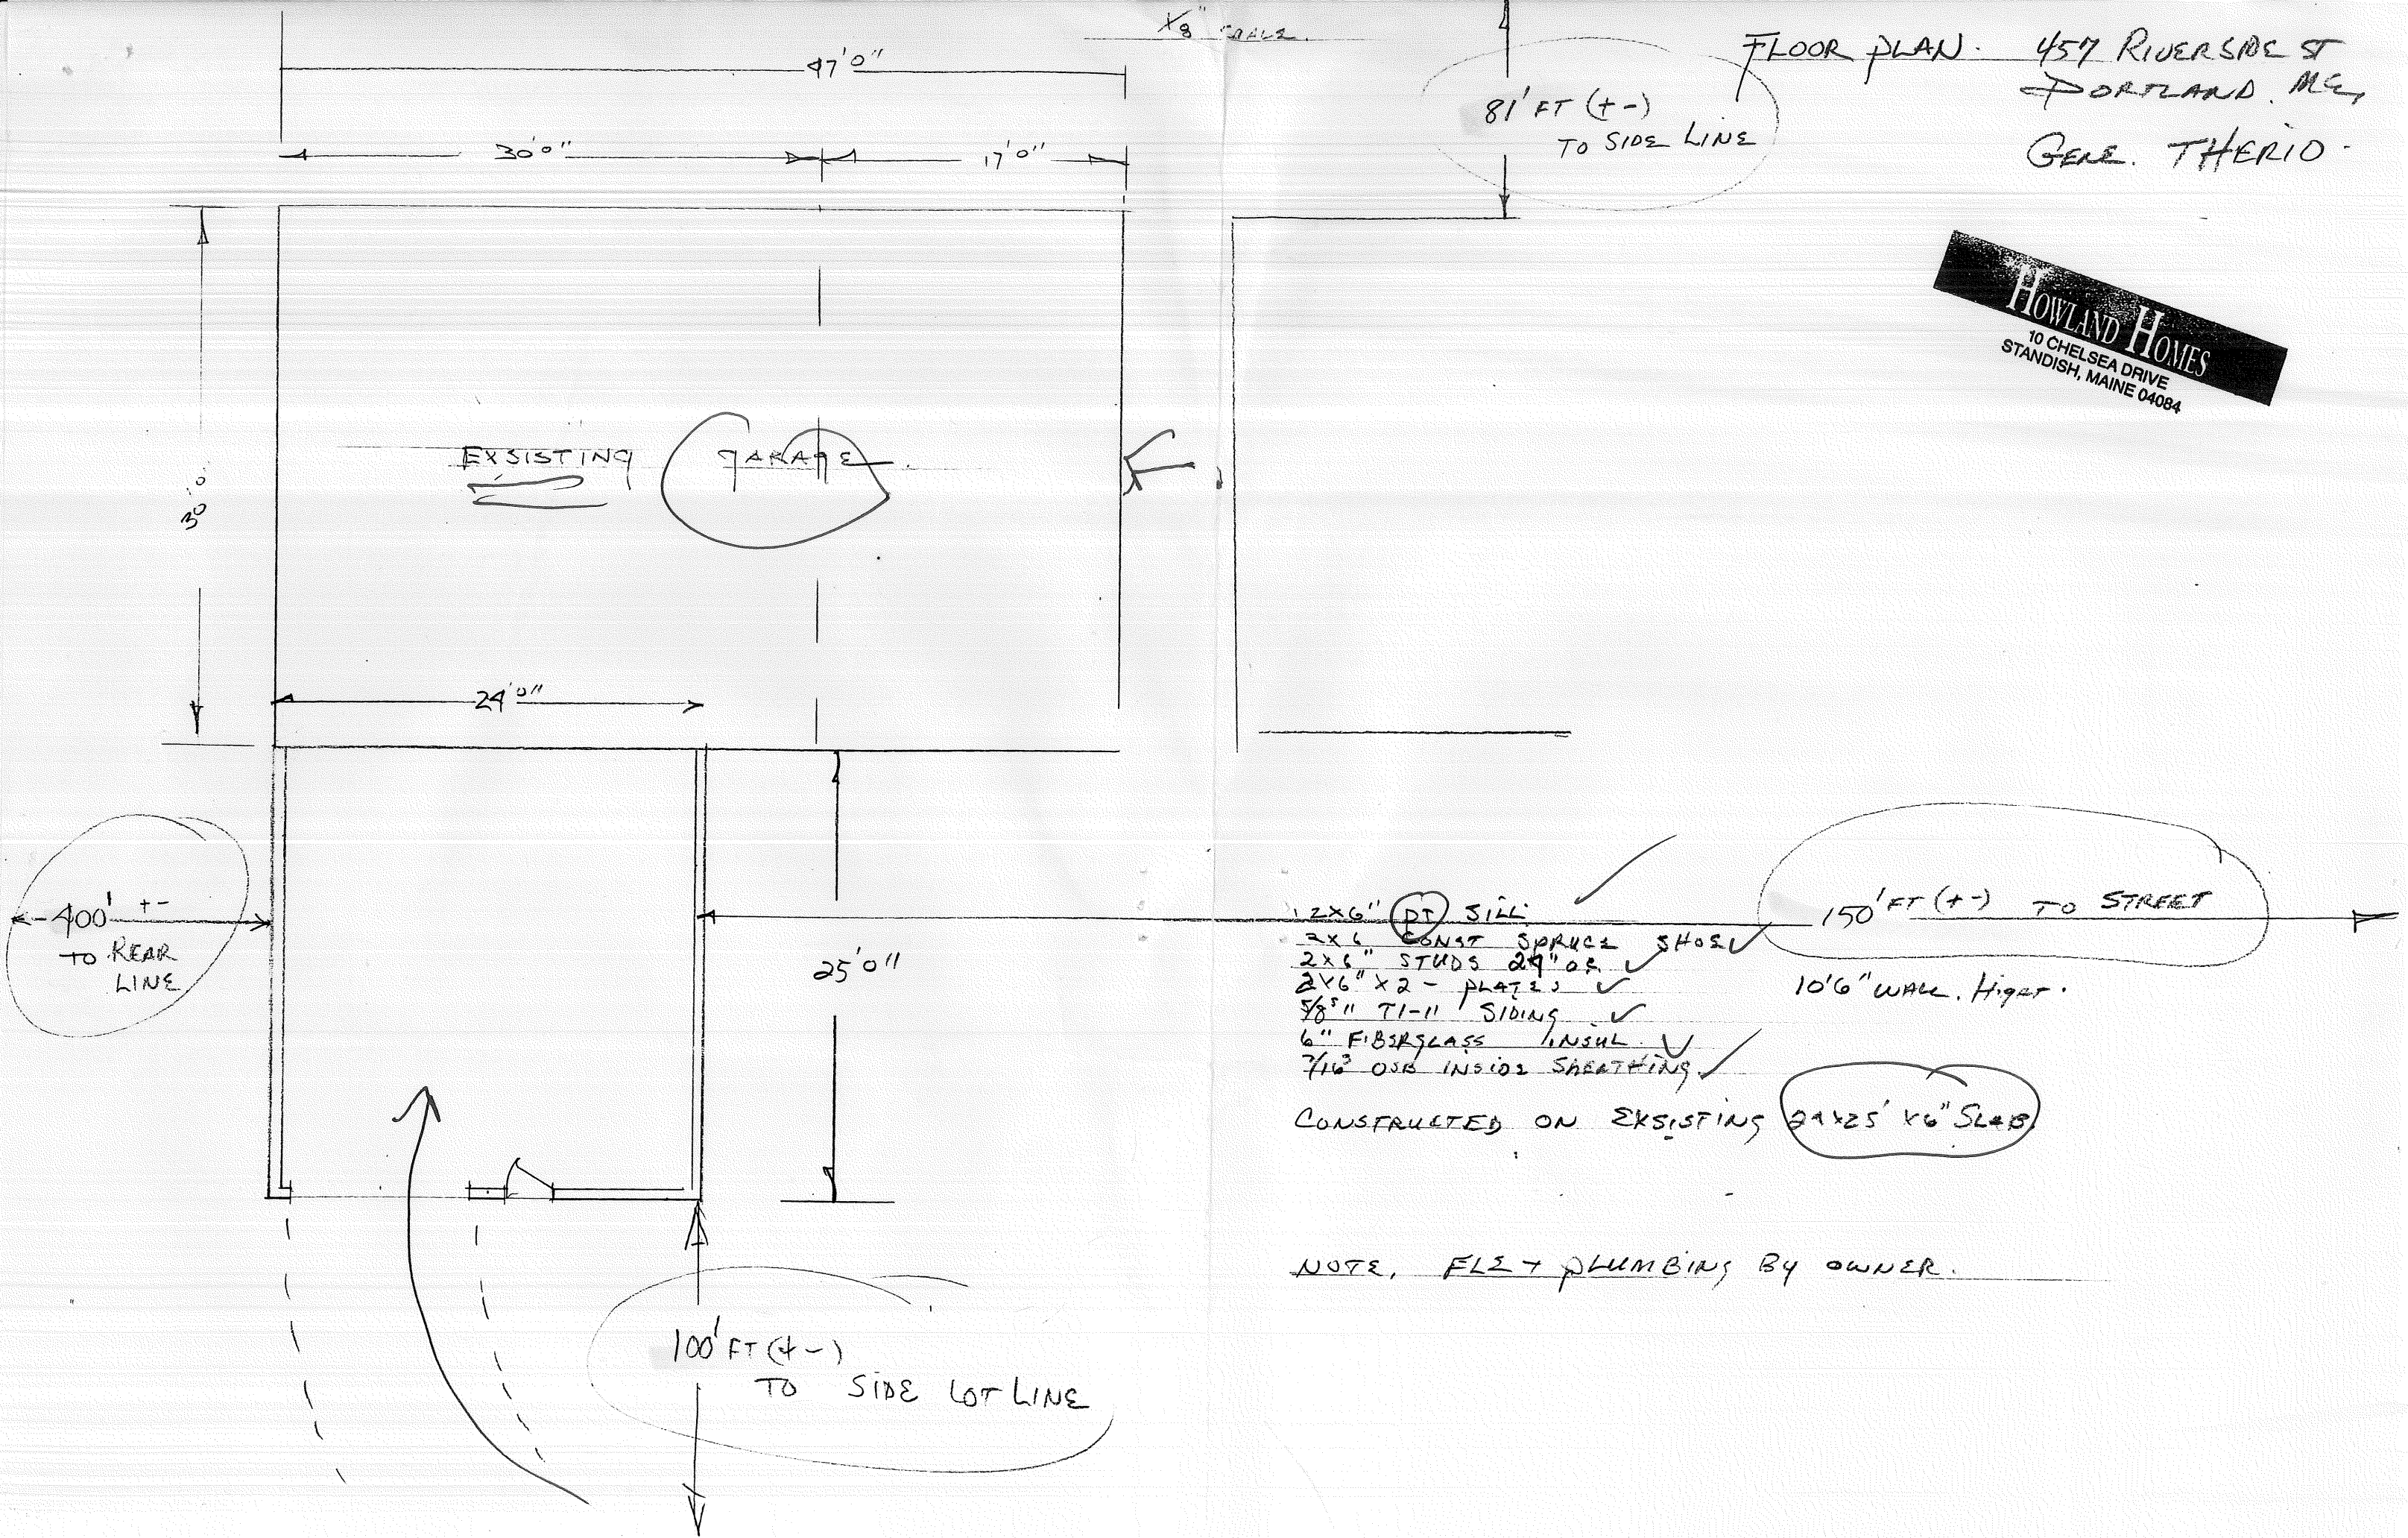 1/8" SCALE.
FLOOR PLAN. 457 RIVERSIDE ST
PORTLAND. ME,
GENE. THERIO.
47'0"
30'0"
17'0"
81' FT (+-)
TO SIDE LINE
HOWLAND HOMES
10 CHELSEA DRIVE
STANDISH, MAINE 04084
EXSISTING GARAGE.
30'0"
24'0"
400' +-
TO REAR
LINE
25'0"
2X6" PT SILL
2X6 CONST SPRUCE SHOE
2X6" STUDS 24" OC
2X6" X 2 - PLATES
5/8" T1-11 SIDING
6" FIBERGLASS INSUL.
7/16 OSB INSIDE SHEATHING.
150' FT (+-) TO STREET
10'6" WALL. Higet.
CONSTRUCTED ON EXSISTING 24X25' X6" SLAB.
NOTE, ELE + PLUMBING BY OWNER.
100' FT (+-)
TO SIDE LOT LINE